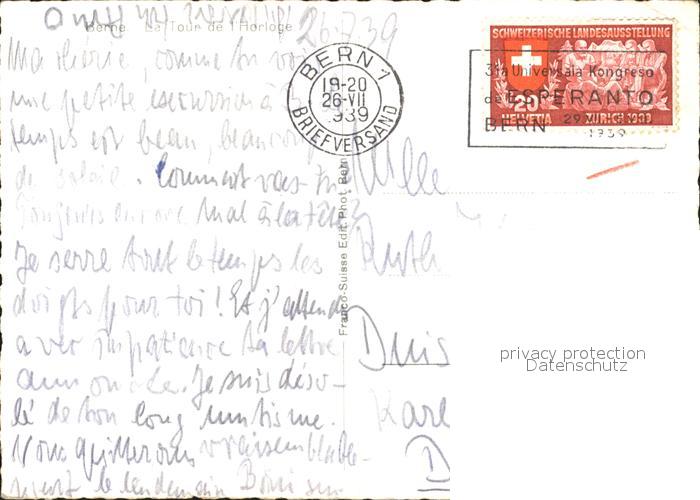 Berne La Tour de l'Horloge
26.7.39
Ma chérie, comme tu vois
une petite excursion à
temps est beau, beaucoup
de soleil. Comment vas-tu
Toujours encore mal à la tête?
Je serre tout le temps les
doigts pour toi! Et j'attends
avec impatience ta lettre
Je suis déso-
lé de ton long
Nous quitterons vraisemblable-
ment le lendemain
BERN 1
19-20
26-VII
1939
BRIEFVERSAND
SCHWEIZERISCHE LANDESAUSSTELLUNG
20
HELVETIA ZÜRICH 1939
31a Universala Kongreso
de ESPERANTO
BERN 29
1939
Franco-Suisse Edit. Phot. Bern
Mlle
Ruth
Duis
Karl
D
privacy protection
Datenschutz